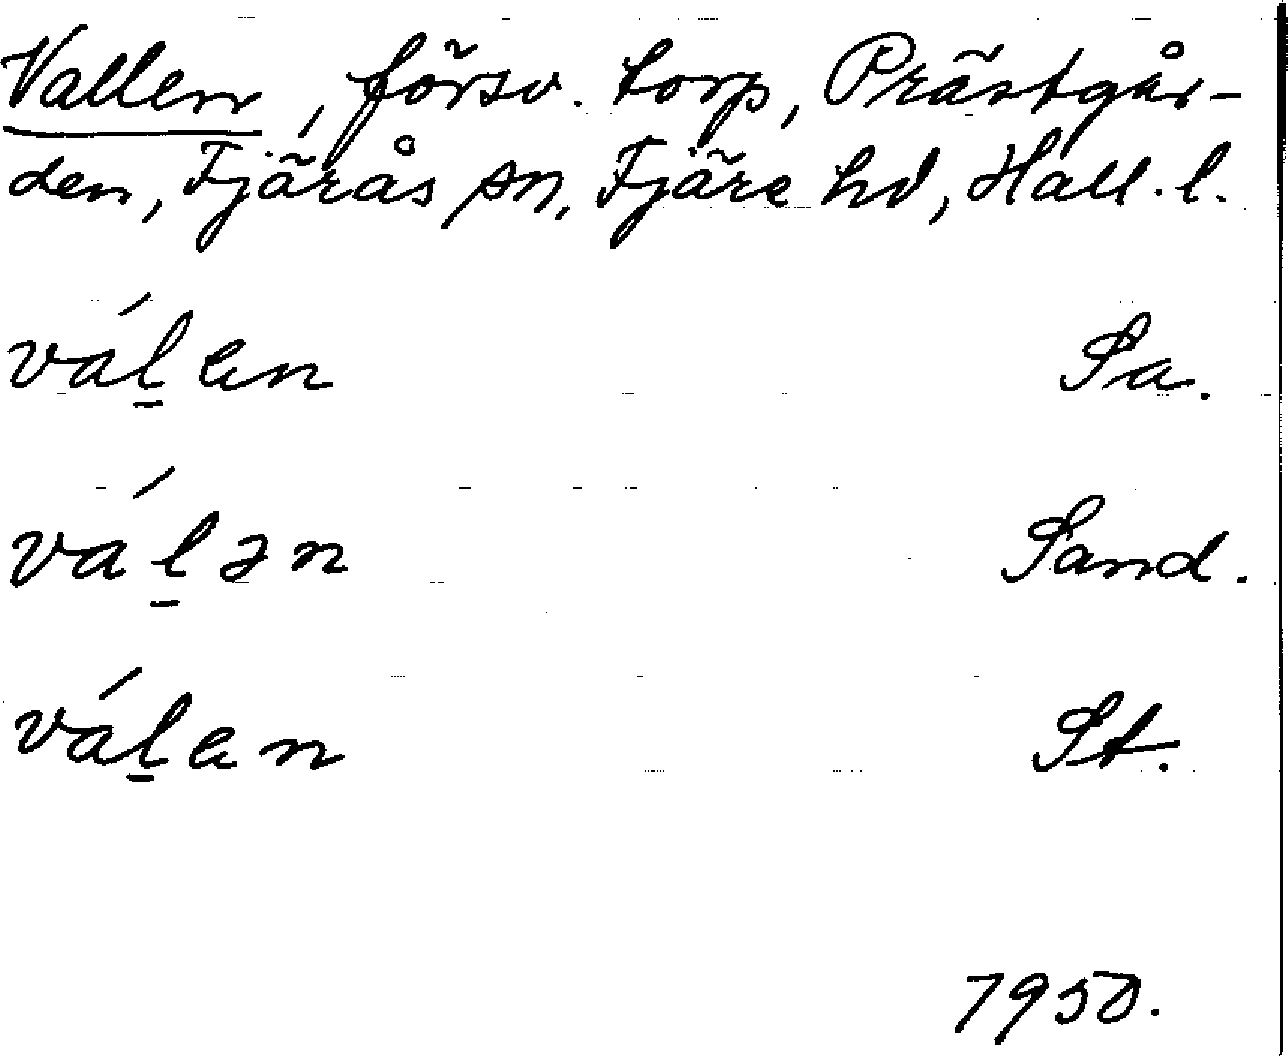 Vallen, försv. torp, Prästgår-
den, Fjärås sn, Fjäre hd, Hall. l.
váḻen Sa.
váḻən Sand.
váḻen St.
1950.